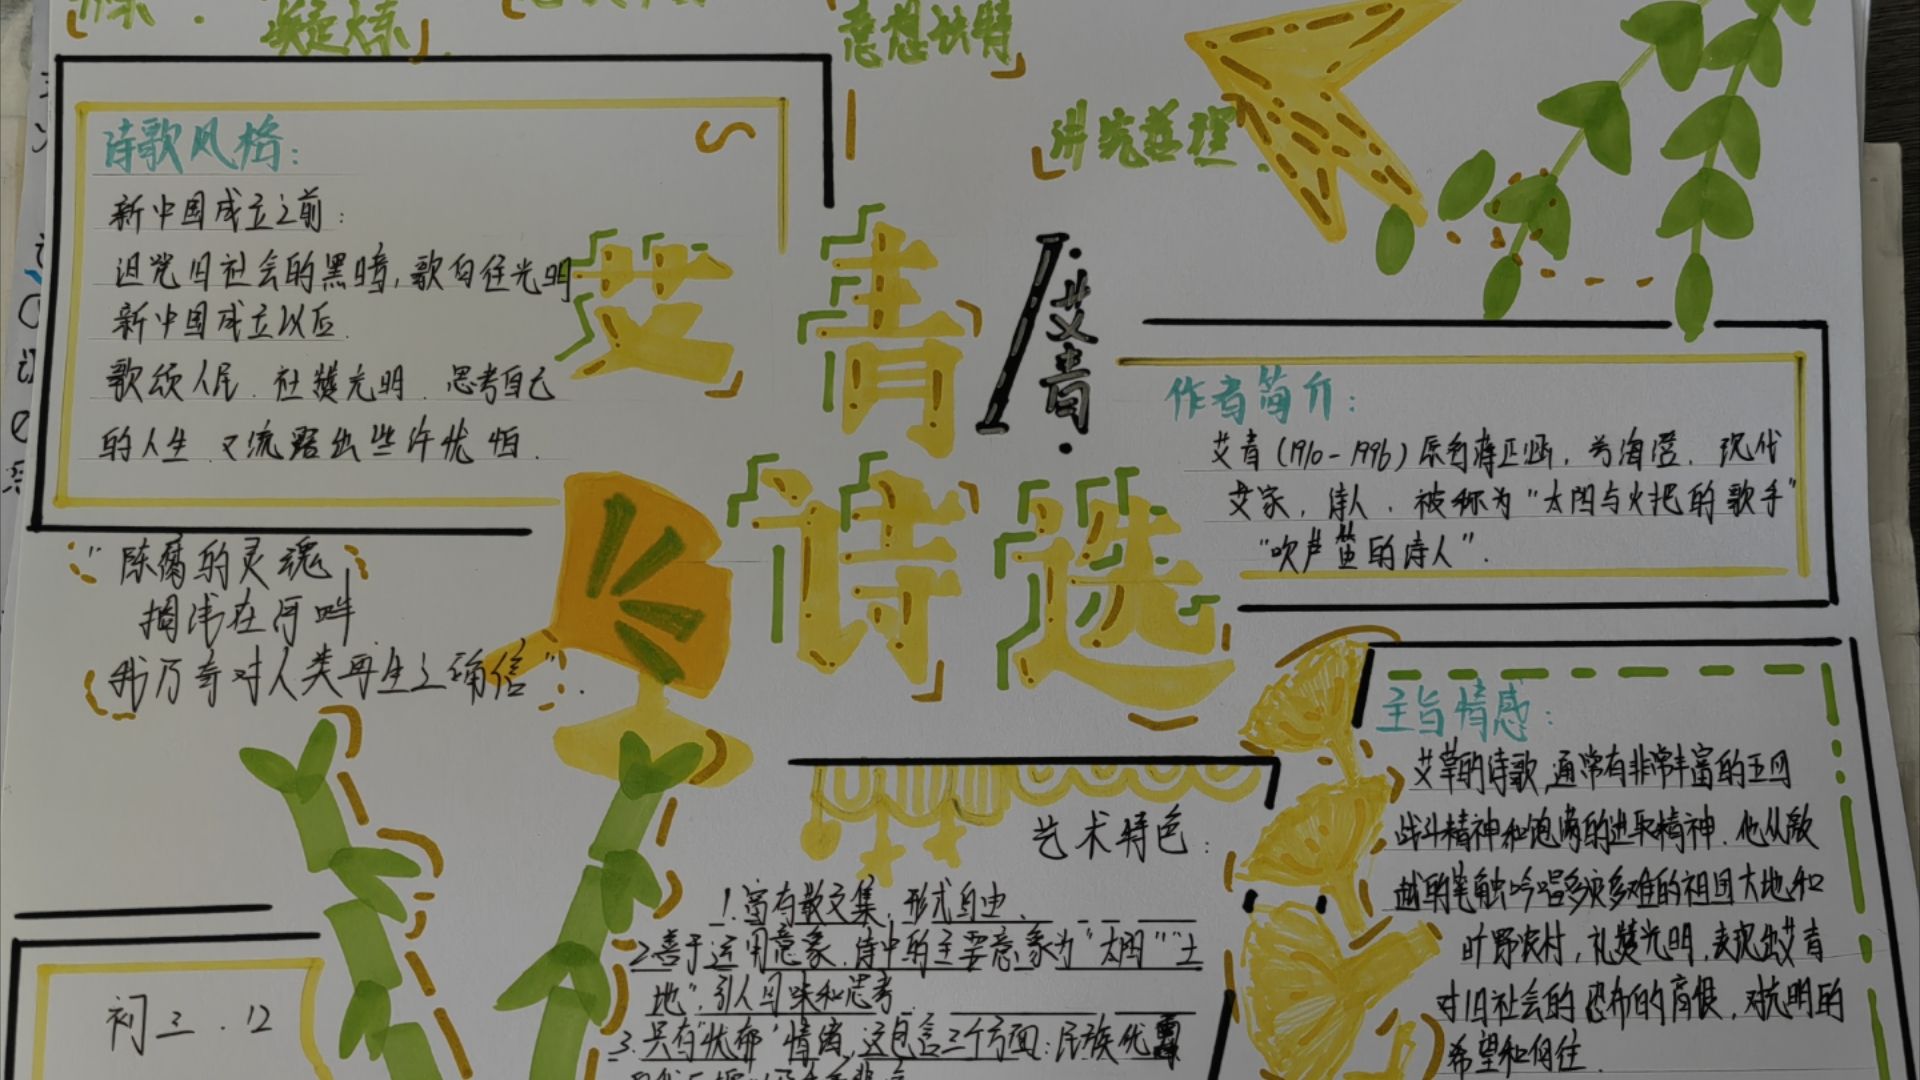 凝练
意想独特
讲究哲理
诗歌风格:
新中国成立之前:
诅咒旧社会的黑暗,歌向往光明
新中国成立以后.
歌颂人民.社赞光明.思考自己
的人生.又流露出些许忧
艾青
诗选
艾青
作者简介:
艾青(1910-1996)原名蒋正涵,号海澄.现代
文家,诗人.被称为"太阳与火把的歌手"
"吹芦笛的诗人".
"陈腐的灵魂
搁浅在河畔
我乃有对人类再生之确信".
主旨情感:
艾草的诗歌,通常有非常丰富的
战斗精神和饱满的进取精神.他从敏
越的笔触吟唱多灾多难的祖国大地和
旷野农村,礼赞光明,表现出艾青
对旧社会的恐怖的痛恨,对光明的
希望和向往.
艺术特色:
1.富有散文集,形式自由、
2.善于运用意象,诗中的主要意象为"太阳""土
地".引人回味和思考.
3.具有"忧郁"情离,这包含三个方面:民族忧
初三.12